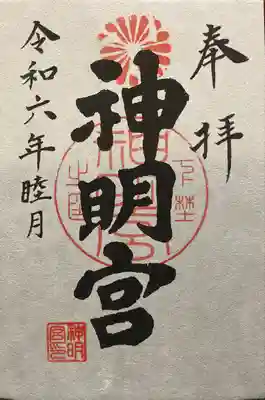 奉拝
神明宮
令和六年睦月
神明
宮印